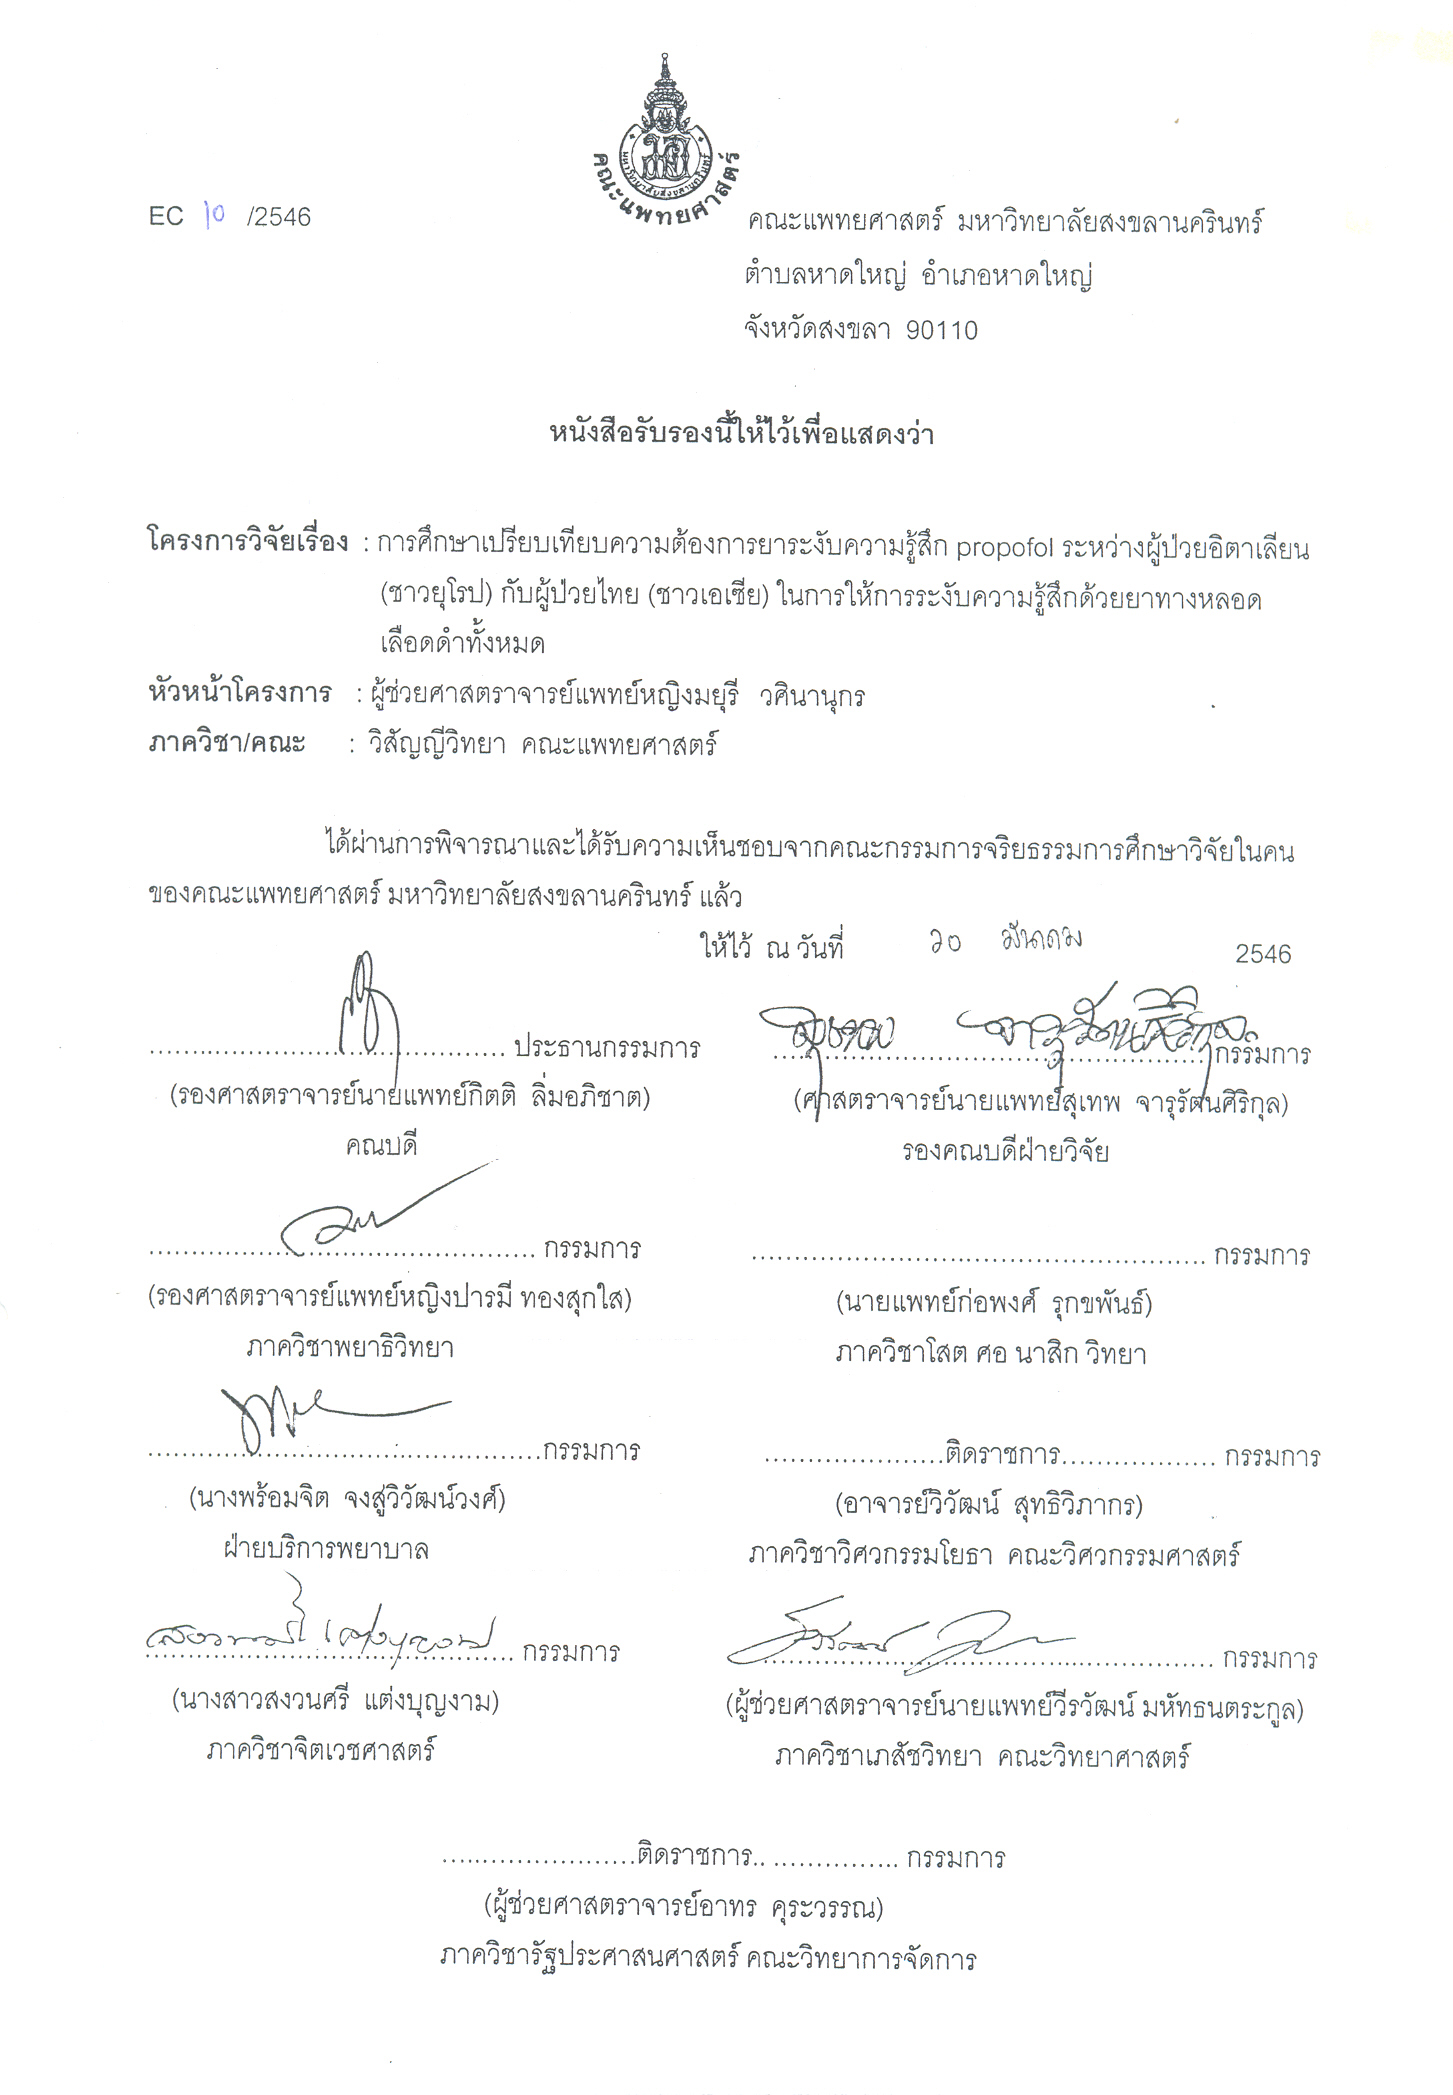 มหาวิทยาลัยสงขลานครินทร์
คณะแพทยศาสตร์
EC 10 /2546
คณะแพทยศาสตร์ มหาวิทยาลัยสงขลานครินทร์
ตำบลหาดใหญ่ อำเภอหาดใหญ่
จังหวัดสงขลา 90110
หนังสือรับรองนี้ให้ไว้เพื่อแสดงว่า
โครงการวิจัยเรื่อง : การศึกษาเปรียบเทียบความต้องการยาระงับความรู้สึก propofol ระหว่างผู้ป่วยอิตาเลียน
(ชาวยุโรป) กับผู้ป่วยไทย (ชาวเอเซีย) ในการให้การระงับความรู้สึกด้วยยาทางหลอด
เลือดดำทั้งหมด
หัวหน้าโครงการ : ผู้ช่วยศาสตราจารย์แพทย์หญิงมยุรี วศินานุกร
ภาควิชา/คณะ : วิสัญญีวิทยา คณะแพทยศาสตร์
ได้ผ่านการพิจารณาและได้รับความเห็นชอบจากคณะกรรมการจริยธรรมการศึกษาวิจัยในคน
ของคณะแพทยศาสตร์ มหาวิทยาลัยสงขลานครินทร์ แล้ว
ให้ไว้ ณ วันที่ ๒๐ มีนาคม 2546
........................................ ประธานกรรมการ
สุเทพ จารุรัตนศิริกุล กรรมการ
(รองศาสตราจารย์นายแพทย์กิตติ ลิ่มอภิชาต)
(ศาสตราจารย์นายแพทย์สุเทพ จารุรัตนศิริกุล)
คณบดี
รองคณบดีฝ่ายวิจัย
........................................ กรรมการ
........................................ กรรมการ
(รองศาสตราจารย์แพทย์หญิงปารมี ทองสุกใส)
(นายแพทย์ก่อพงศ์ รุกขพันธ์)
ภาควิชาพยาธิวิทยา
ภาควิชาโสต ศอ นาสิก วิทยา
........................................กรรมการ
.....................ติดราชการ.................. กรรมการ
(นางพร้อมจิต จงสู่วิวัฒน์วงศ์)
(อาจารย์วิวัฒน์ สุทธิวิภากร)
ฝ่ายบริการพยาบาล
ภาควิชาวิศวกรรมโยธา คณะวิศวกรรมศาสตร์
สงวนศรี แต่งบุญงาม กรรมการ
........................................ กรรมการ
(นางสาวสงวนศรี แต่งบุญงาม)
(ผู้ช่วยศาสตราจารย์นายแพทย์วีรวัฒน์ มหัทธนตระกูล)
ภาควิชาจิตเวชศาสตร์
ภาควิชาเภสัชวิทยา คณะวิทยาศาสตร์
.......................ติดราชการ.. ............... กรรมการ
(ผู้ช่วยศาสตราจารย์อาทร คุระวรรณ)
ภาควิชารัฐประศาสนศาสตร์ คณะวิทยาการจัดการ